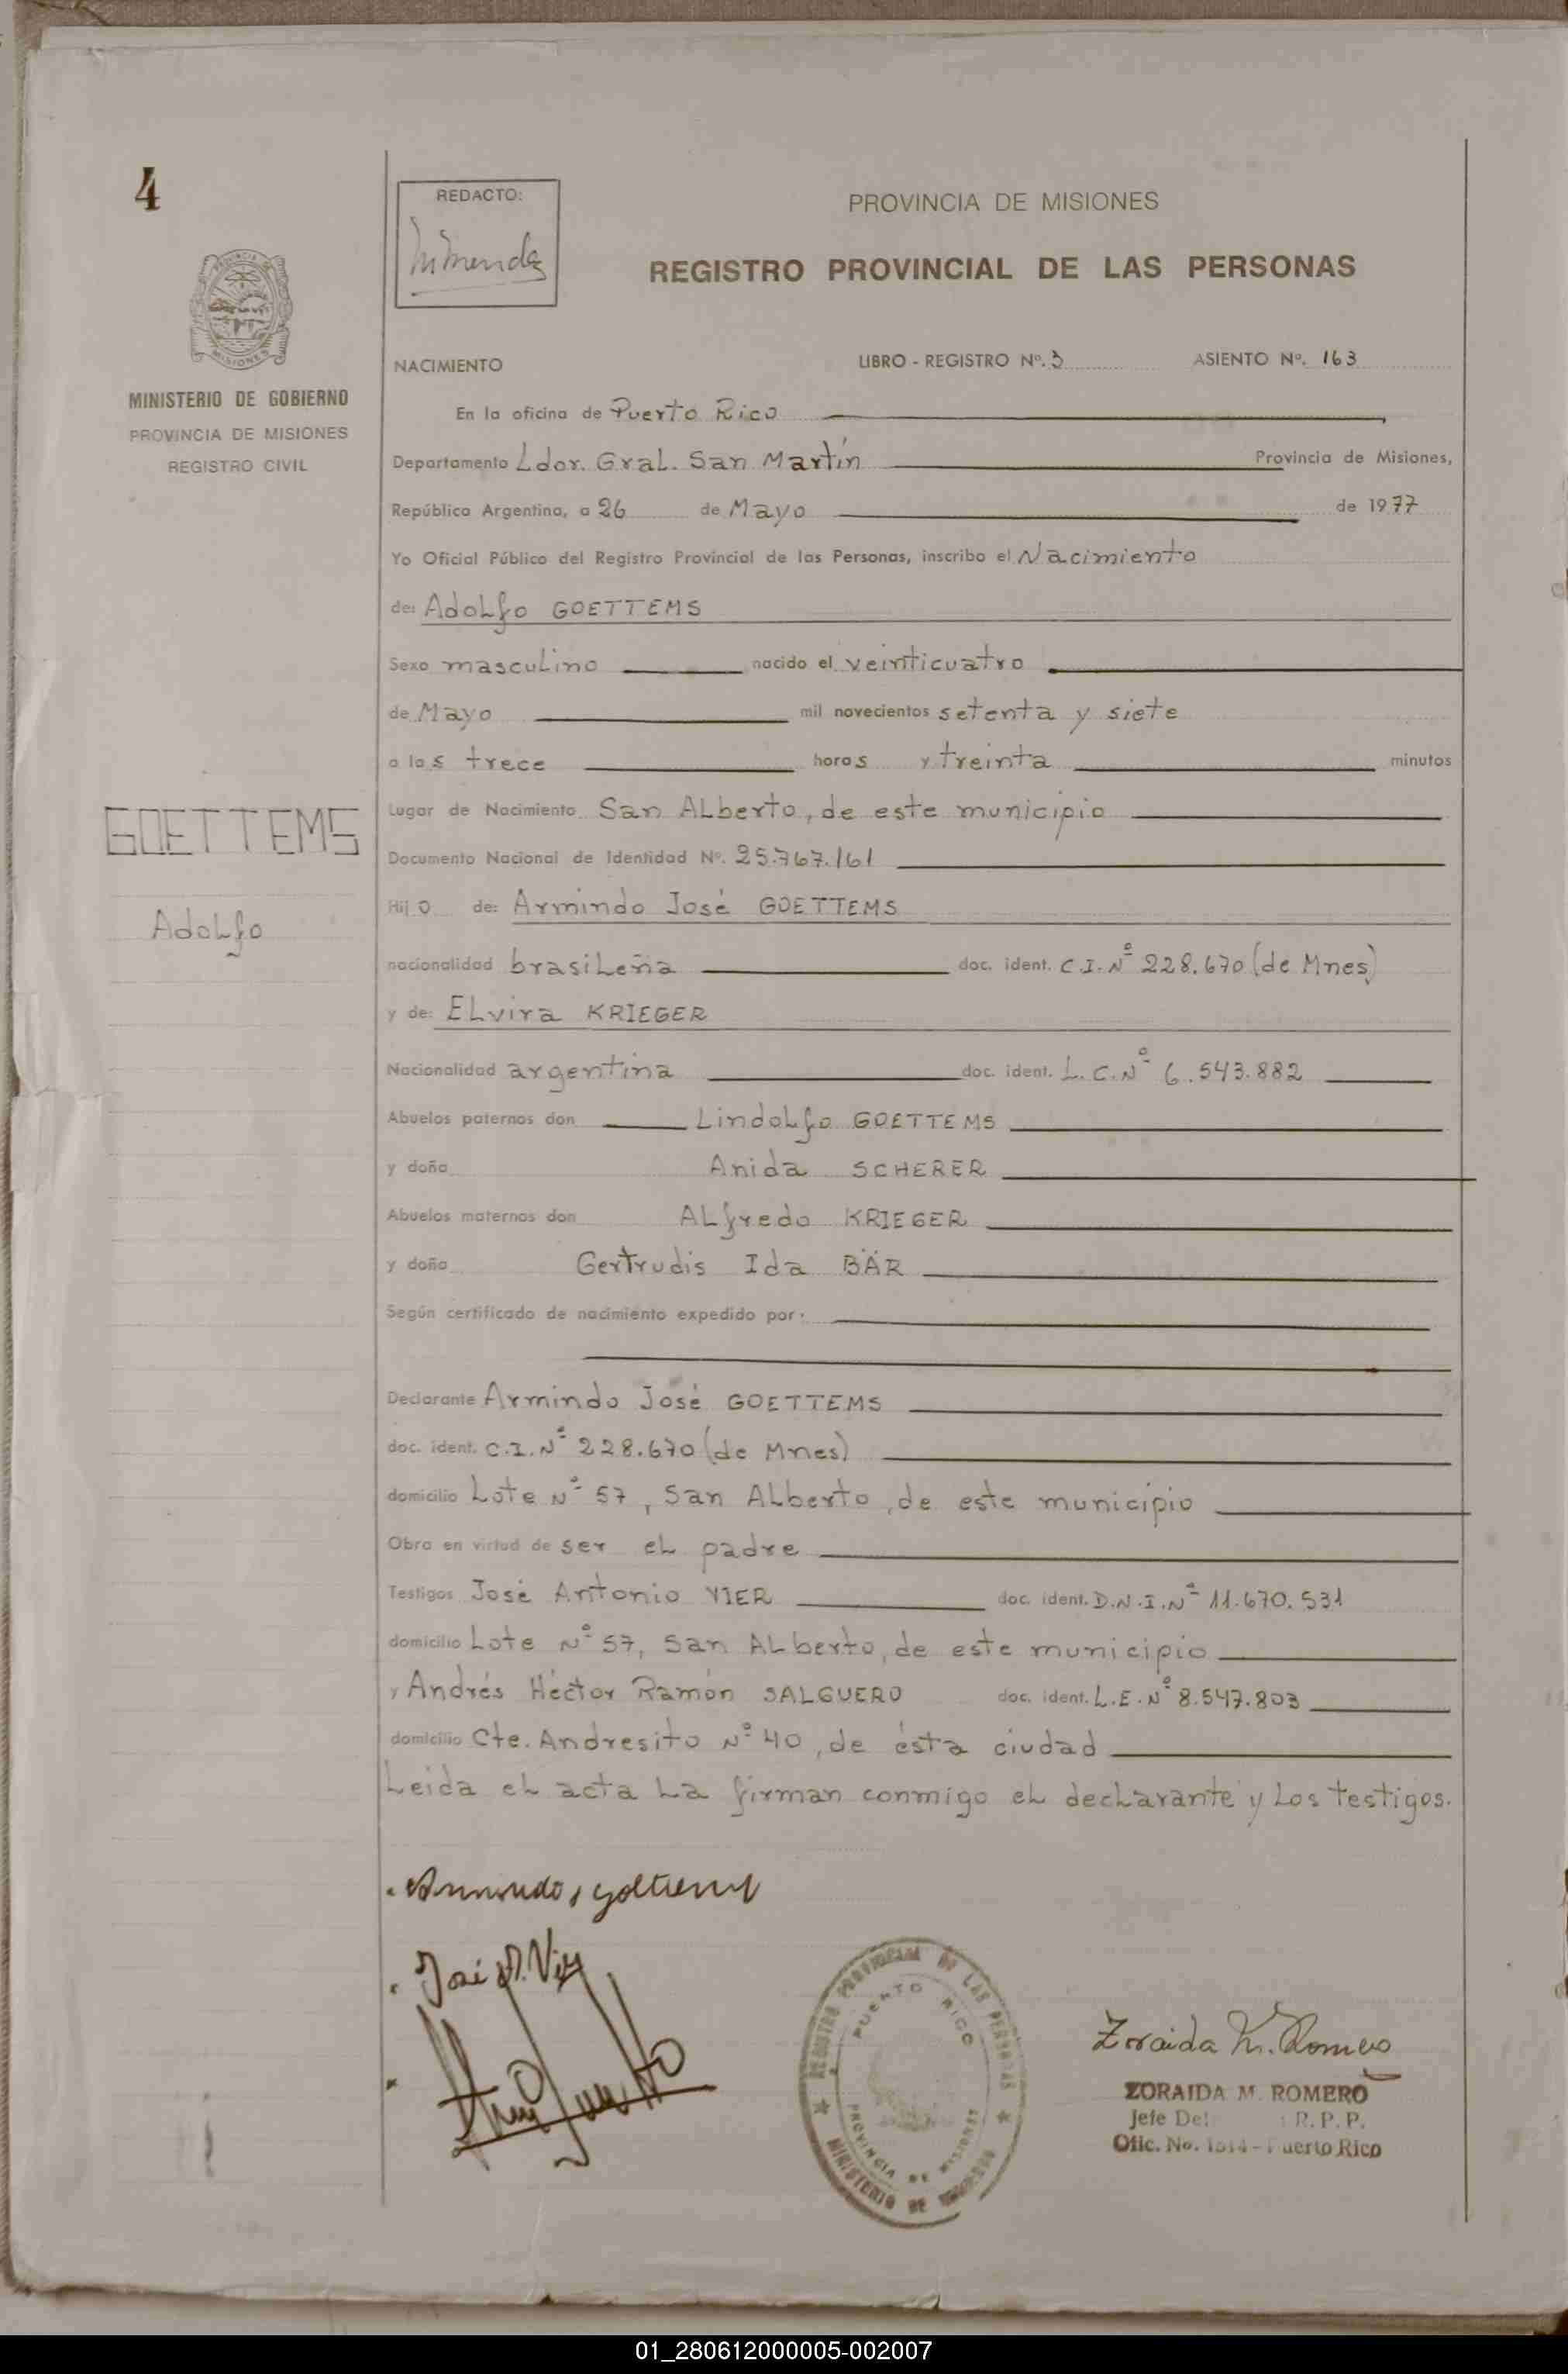 4
REDACTO:
PROVINCIA DE MISIONES
REGISTRO PROVINCIAL DE LAS PERSONAS
MISIONES
MINISTERIO DE GOBIERNO
PROVINCIA DE MISIONES
REGISTRO CIVIL
NACIMIENTO LIBRO - REGISTRO Nº. 3 ASIENTO Nº. 163
En la oficina de Puerto Rico
Departamento Ldor. Gral. San Martín Provincia de Misiones,
República Argentina, a 26 de Mayo de 1977
Yo Oficial Público del Registro Provincial de las Personas, inscribo el Nacimiento
de: Adolfo GOETTEMS
Sexo masculino nacido el veinticuatro
de Mayo mil novecientos setenta y siete
a las trece horas y treinta minutos
Lugar de Nacimiento San Alberto, de este municipio
GOETTEMS
Adolfo
Documento Nacional de Identidad Nº. 25.767.161
Hijo de: Armindo José GOETTEMS
nacionalidad brasileña doc. ident. C.I. Nº 228.670 (de Mnes)
y de: Elvira KRIEGER
Nacionalidad argentina doc. ident. L.C. Nº 6.543.882
Abuelos paternos don Lindolfo GOETTEMS
y doña Anida SCHERER
Abuelos maternos don Alfredo KRIEGER
y doña Gertrudis Ida BÄR
Según certificado de nacimiento expedido por:
Declarante Armindo José GOETTEMS
doc. ident. C.I. Nº 228.670 (de Mnes)
domicilio Lote Nº 57, San Alberto, de este municipio
Obra en virtud de ser el padre
Testigos José Antonio VIER doc. ident. D.N.I. Nº 11.670.531
domicilio Lote Nº 57, San Alberto, de este municipio
y Andrés Héctor Ramón SALGUERO doc. ident. L.E. Nº 8.547.803
domicilio Cte. Andresito Nº 40, de ésta ciudad
Leida el acta la firman conmigo el declarante y los testigos.
José A. Vier
REGISTRO PROVINCIAL DE LAS PERSONAS
PUERTO RICO
PROVINCIA DE MISIONES
MINISTERIO DE
Zoraida M. Romero
ZORAIDA M. ROMERO
Jefe R. P. P.
Ofic. No. 1514 - Puerto Rico
01_280612000005-002007